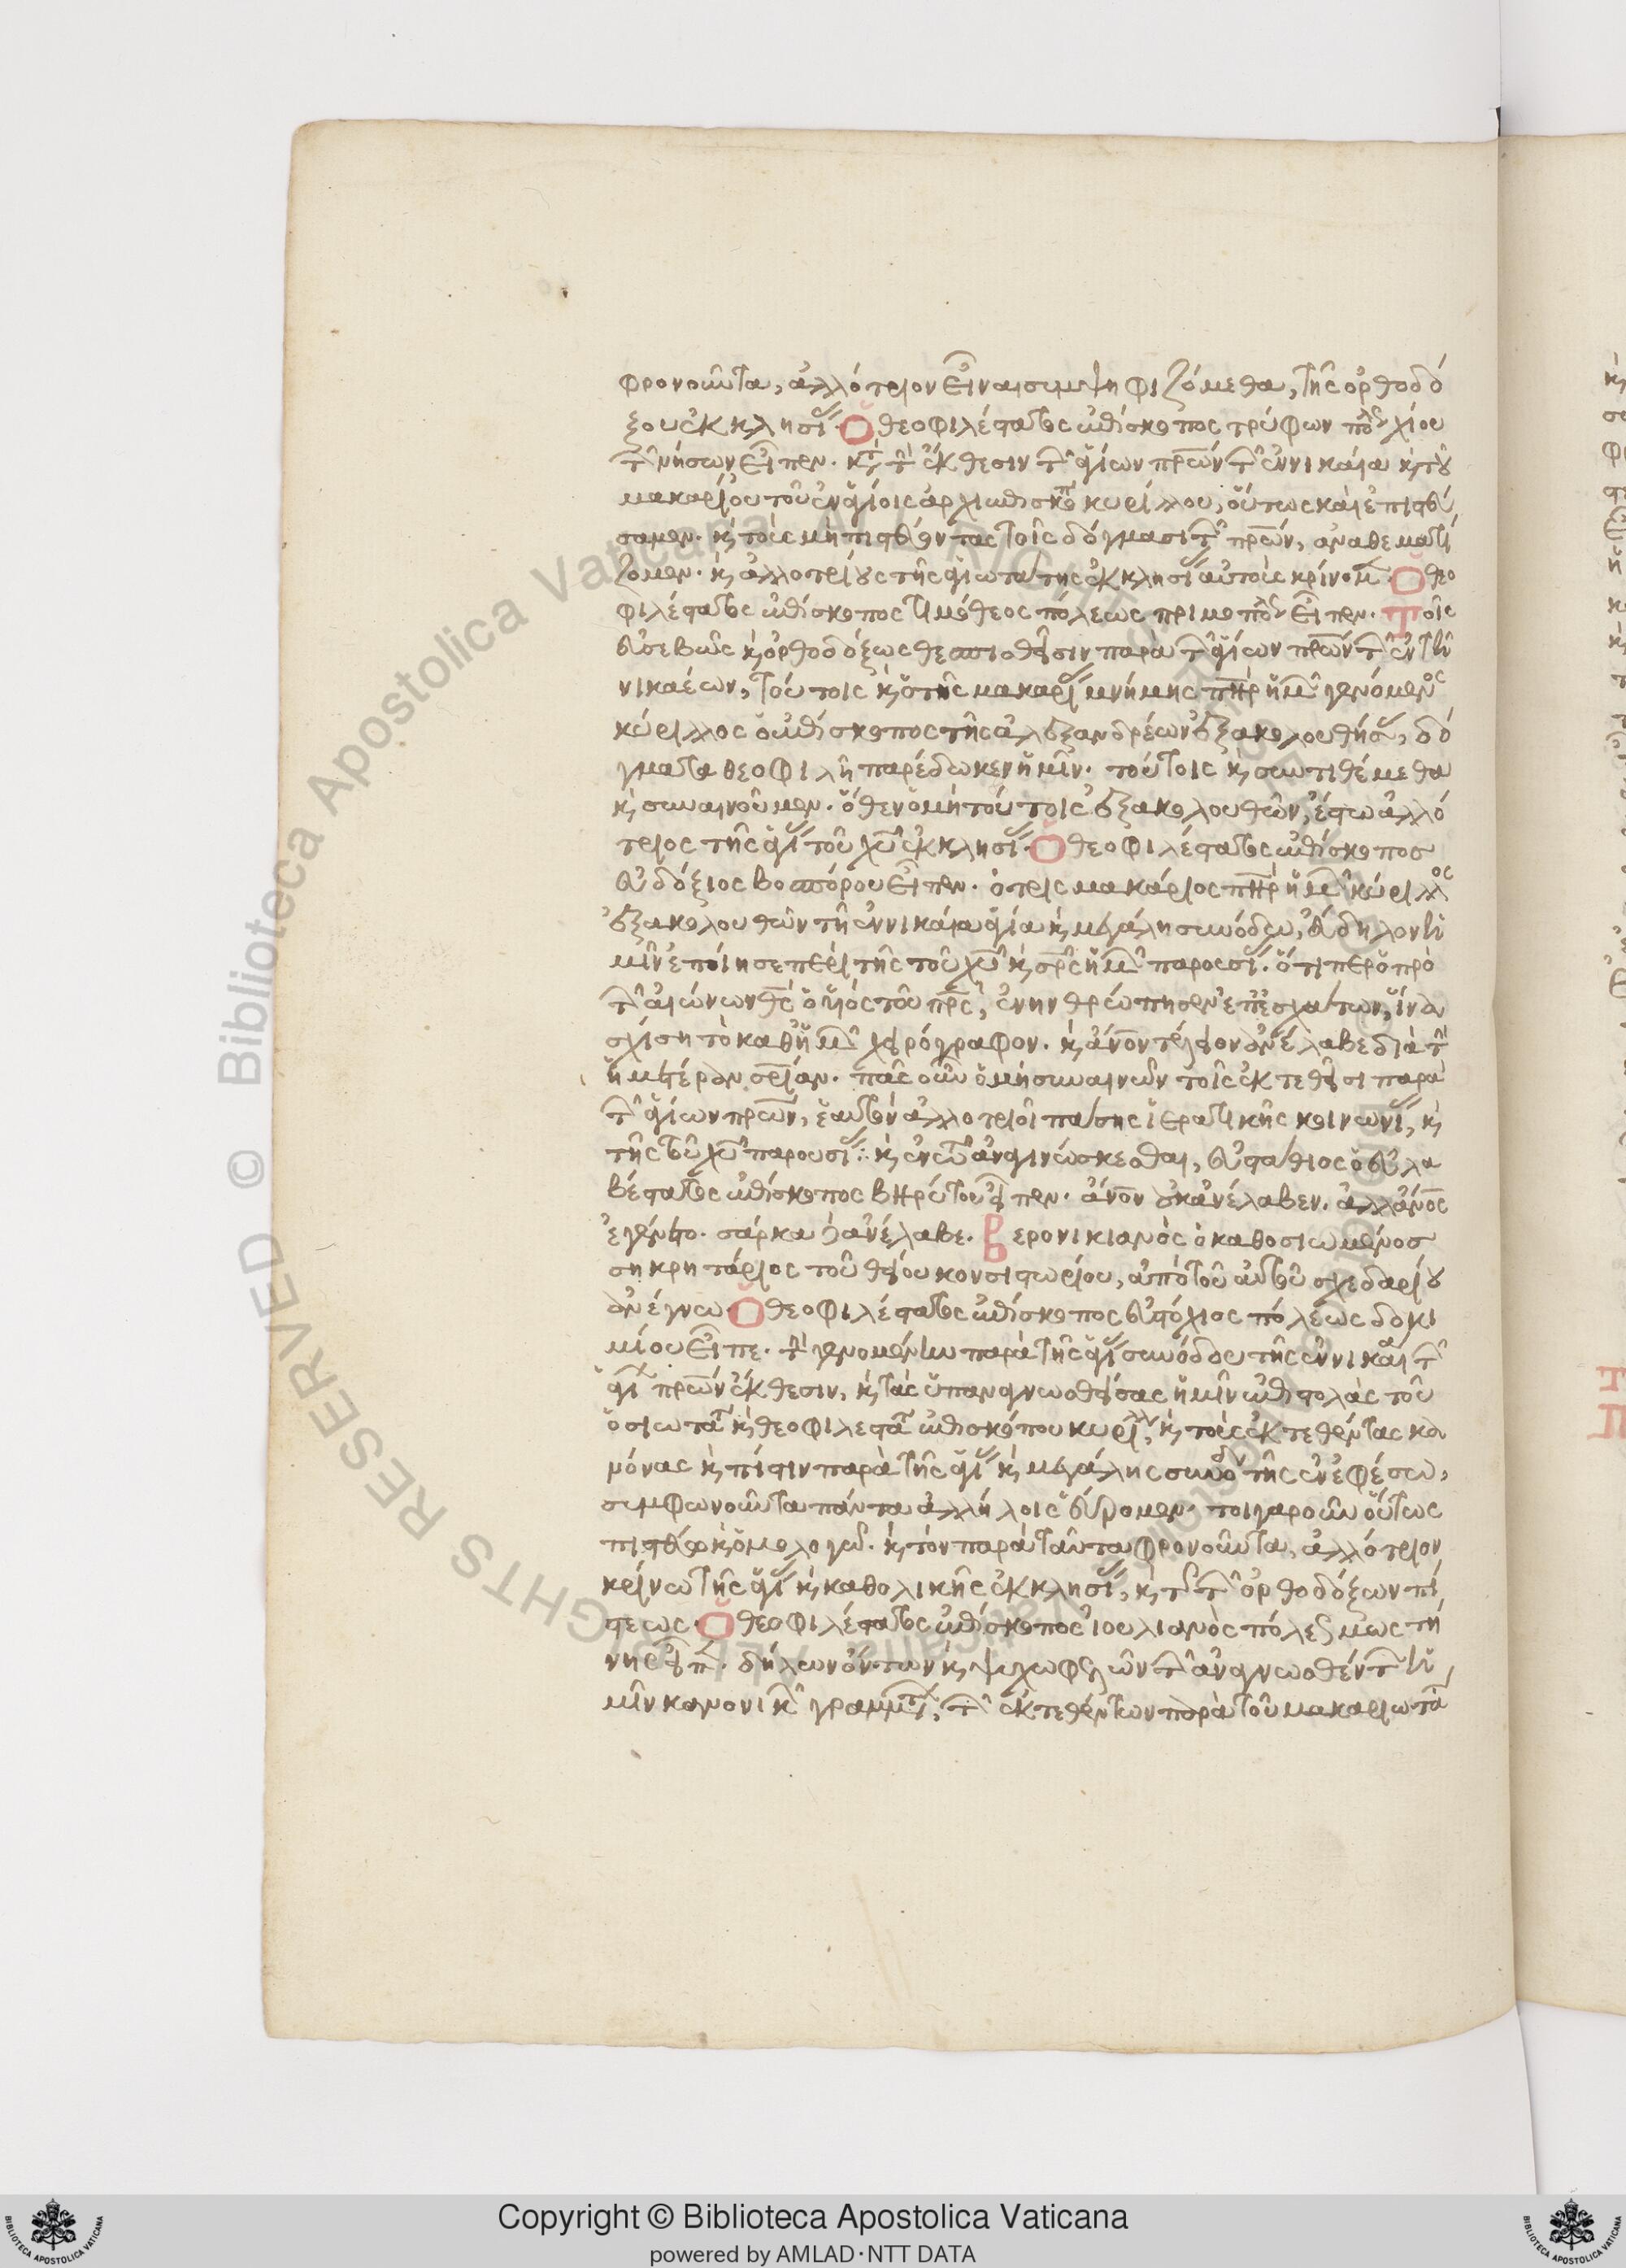 φρονοῦντα, ἀλλότριον εἶναι συμψηφιζόμεθα, τῆς ὀρθοδό
ξου ἐκκλησί. Ὁ θεοφιλέστατος ἐπίσκοπος τρύφων πόλ χίου
τ νήσων εἶπεν. κτ τ ἔκθεσιν τ ἁγίων πρων τ ἐν νικαία κ τοῦ
μακαρίου τοῦ ἐν ἁγίοις ἀρχιεπισκόπ κυρίλλου, οὕτως καὶ ἐπιστεύ
σαμεν. κ τοὺς μὴ πιστεύοντας τοῖς δόγμασι τ πρων, ἀναθεματί
ζομεν. κ ἀλλοτρίους τῆς ἁγιωτάτης ἐκκλησί αὐτοὺς κρίνομ. Ὁ θεο
φιλέστατος ἐπίσκοπος τιμόθεος πόλεως πριμοπόλ εἶπεν. Τοῖς
εὐσεβῶς κ ὀρθοδόξως θεσπισθεῖσιν παρὰ τ ἁγίων πρων τ ἐν τῆ
νικαέων, τούτοις κ ὁ τῆς μακαρί μνήμης πηρ ἡμ γενόμενος
κύριλλος ὁ ἐπίσκοπος τῆς ἀλεξανδρέων ἐξακολουθήσ, δό
γματα θεοφιλῆ παρέδωκεν ἡμῖν. τούτοις κ συντιθέμεθα
κ συναινοῦμεν. ὅθεν ὁ μὴ τούτοις ἐξακολουθῶν, ἔστω ἀλλό
τριος τῆς ἁγί τοῦ χυ ἐκκλησί. Ὁ θεοφιλέστατος ἐπίσκοπος
εὐδόξιος βοσπόρου εἶπεν. ὁ τρὶς μακάριος πηρ ἡμ κύριλλος
ἐξακολουθῶν τῆ ἐν νικαία ἁγία κ μεγάλη συνόδω, εὔδηλον ἡ
μῖν ἐποίησε περὶ τῆς τοῦ χυ κ σρς ἡμ παρουσί. ὅτιπερ ὁ πρὸ
τ αἰώνων θς ὁ υἱὸς τοῦ πρς, ἐνηνθρώπησεν ἐπ ἐσχάτων, ἵνα
σχίση τὸ καθ ἡμ χειρόγραφον. κ ἄνον τέλειον ἀνέλαβε διὰ τ
ἡμετέραν σρίαν. πᾶς οὖν ὁ μὴ συναινῶν τοῖς ἐκτεθεῖσι παρὰ
τ ἁγίων πρων, ἑαυτὸν ἀλλοτριοῖ πάσης ἱερατικῆς κοινωνί, κ
τῆς τοῦ χυ παρουσί. κ ἐν τῶ ἀναγινώσκεσθαι, εὐστάθιος ὁ εὐλα
βέστατος ἐπίσκοπος βηρύτου εἶπεν. ἄνον οὐκ ἀνέλαβεν. ἀλλ ἄνος
ἐγένετο. σάρκα δὲ ἀνέλαβε. Βερονικιανὸς ὁ καθοσιωμένος
σηκρητάριος τοῦ θείου κονσιστωρίου, ἀπὸ τοῦ αὐτοῦ σχεδαρίου
ἀνέγνω. Ὁ θεοφιλέστατος ἐπίσκοπος εὐστόχιος πόλεως δοκι
μίου εἶπε. τ γενομένην παρὰ τῆς ἁγί συνόδου τῆς ἐν νικαία τ
ἁγί πρων ἔκθεσιν, κ τὰς ὑπαναγνωσθείσας ἡμῖν ἐπιστολὰς τοῦ
ὁσιωτά κ θεοφιλεστά ἐπισκόπου κυρίλλ, κ τοὺς ἐκτεθέντας κα
νόνας κ πίστιν παρὰ τῆς ἁγί κ μεγάλης συνόδ τῆς ἐν ἐφέσω,
συμφωνοῦντα πάντα ἀλλήλοις εὕρομεν. τοιγαροῦν οὕτως
πιστεύω κ ὁμολογῶ. κ τὸν παρὰ ταῦτα φρονοῦντα, ἀλλότριον
κρίνω τῆς ἁγί κ καθολικῆς ἐκκλησί, κ τ τ ὀρθοδόξων πί
στεως. Ὁ θεοφιλέστατος ἐπίσκοπος ἰουλιανὸς πόλεως μωστή
νης εἶπ. δήλων ὄντων κ ψυχωφελῶν τ ἀναγνωσθέντ ἡ
μῖν κανονικ γραμμάτ, τ ἐκτεθέντων παρὰ τοῦ μακαριωτά